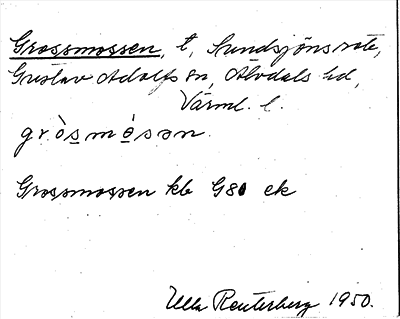 Grossmossen, t, Sundsjöns rote,
Gustav Adolfs sn, Älvdals hd,
Värml. l.
gròsmòsən.
Grossmossen kb G81 ek
Ulla Reuterberg 1950.